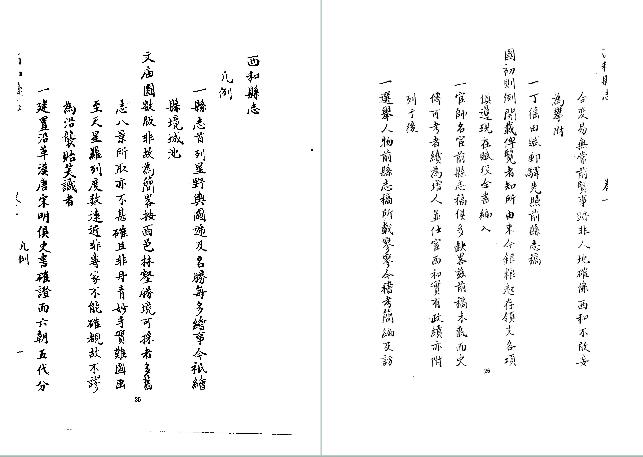 西和縣志
凡例
一縣志首列星野輿圖遞及名勝每多繪事今祇繪
縣境城池
文廟圖數版非故為簡畧按西邑林壑勝境可採者多舊
志八景所取亦不甚確且非丹青好手實難圖出
至天星羅列度數遠近非專家不能確覩故不謬
為沿襲貽笑識者
一建置沿革漢唐宋明俱史書確證而六朝五代分
凡例
一
35
西和縣志
卷一
合變易無常前賢事跡非人地確係西和不敢妄
為攀附
一丁徭田賦郵驛先照前縣志稿
國初則例開載俾覽者知所由來今額徵起存領支各項
俱遵現在賦役全書編入
一官師名宦前縣志稿俱多缺畧茲前稿未載而史
傳可考者續為增入並仕宦西和實有政績亦附
列于後
一選舉人物前縣志稿所載寥寥今稽考簡編及訪
36